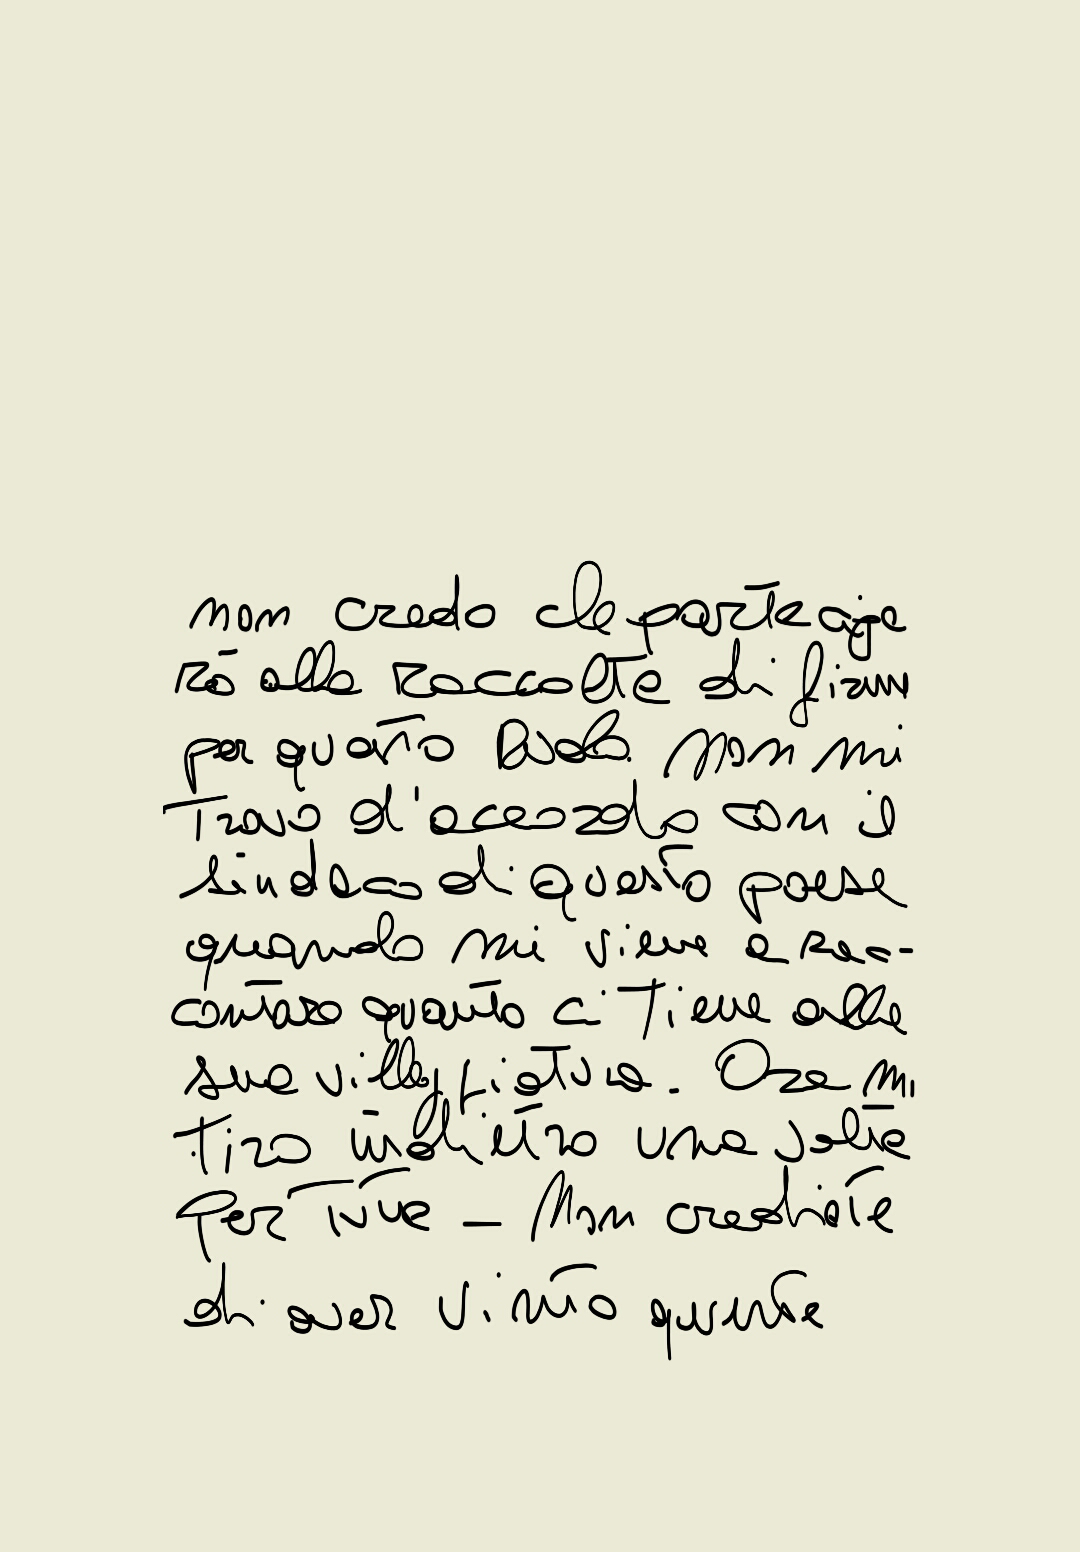 non credo che partecipe
rò alla raccolta di firme
per quanto non mi
trovo d'accordo con il
sindaco di questo paese
quando mi viene a rac-
contare quanto ci tiene alla
sua villeggiatura. Ora mi
tiro indietro una volta
per tutte - Non crediate
di aver vinto